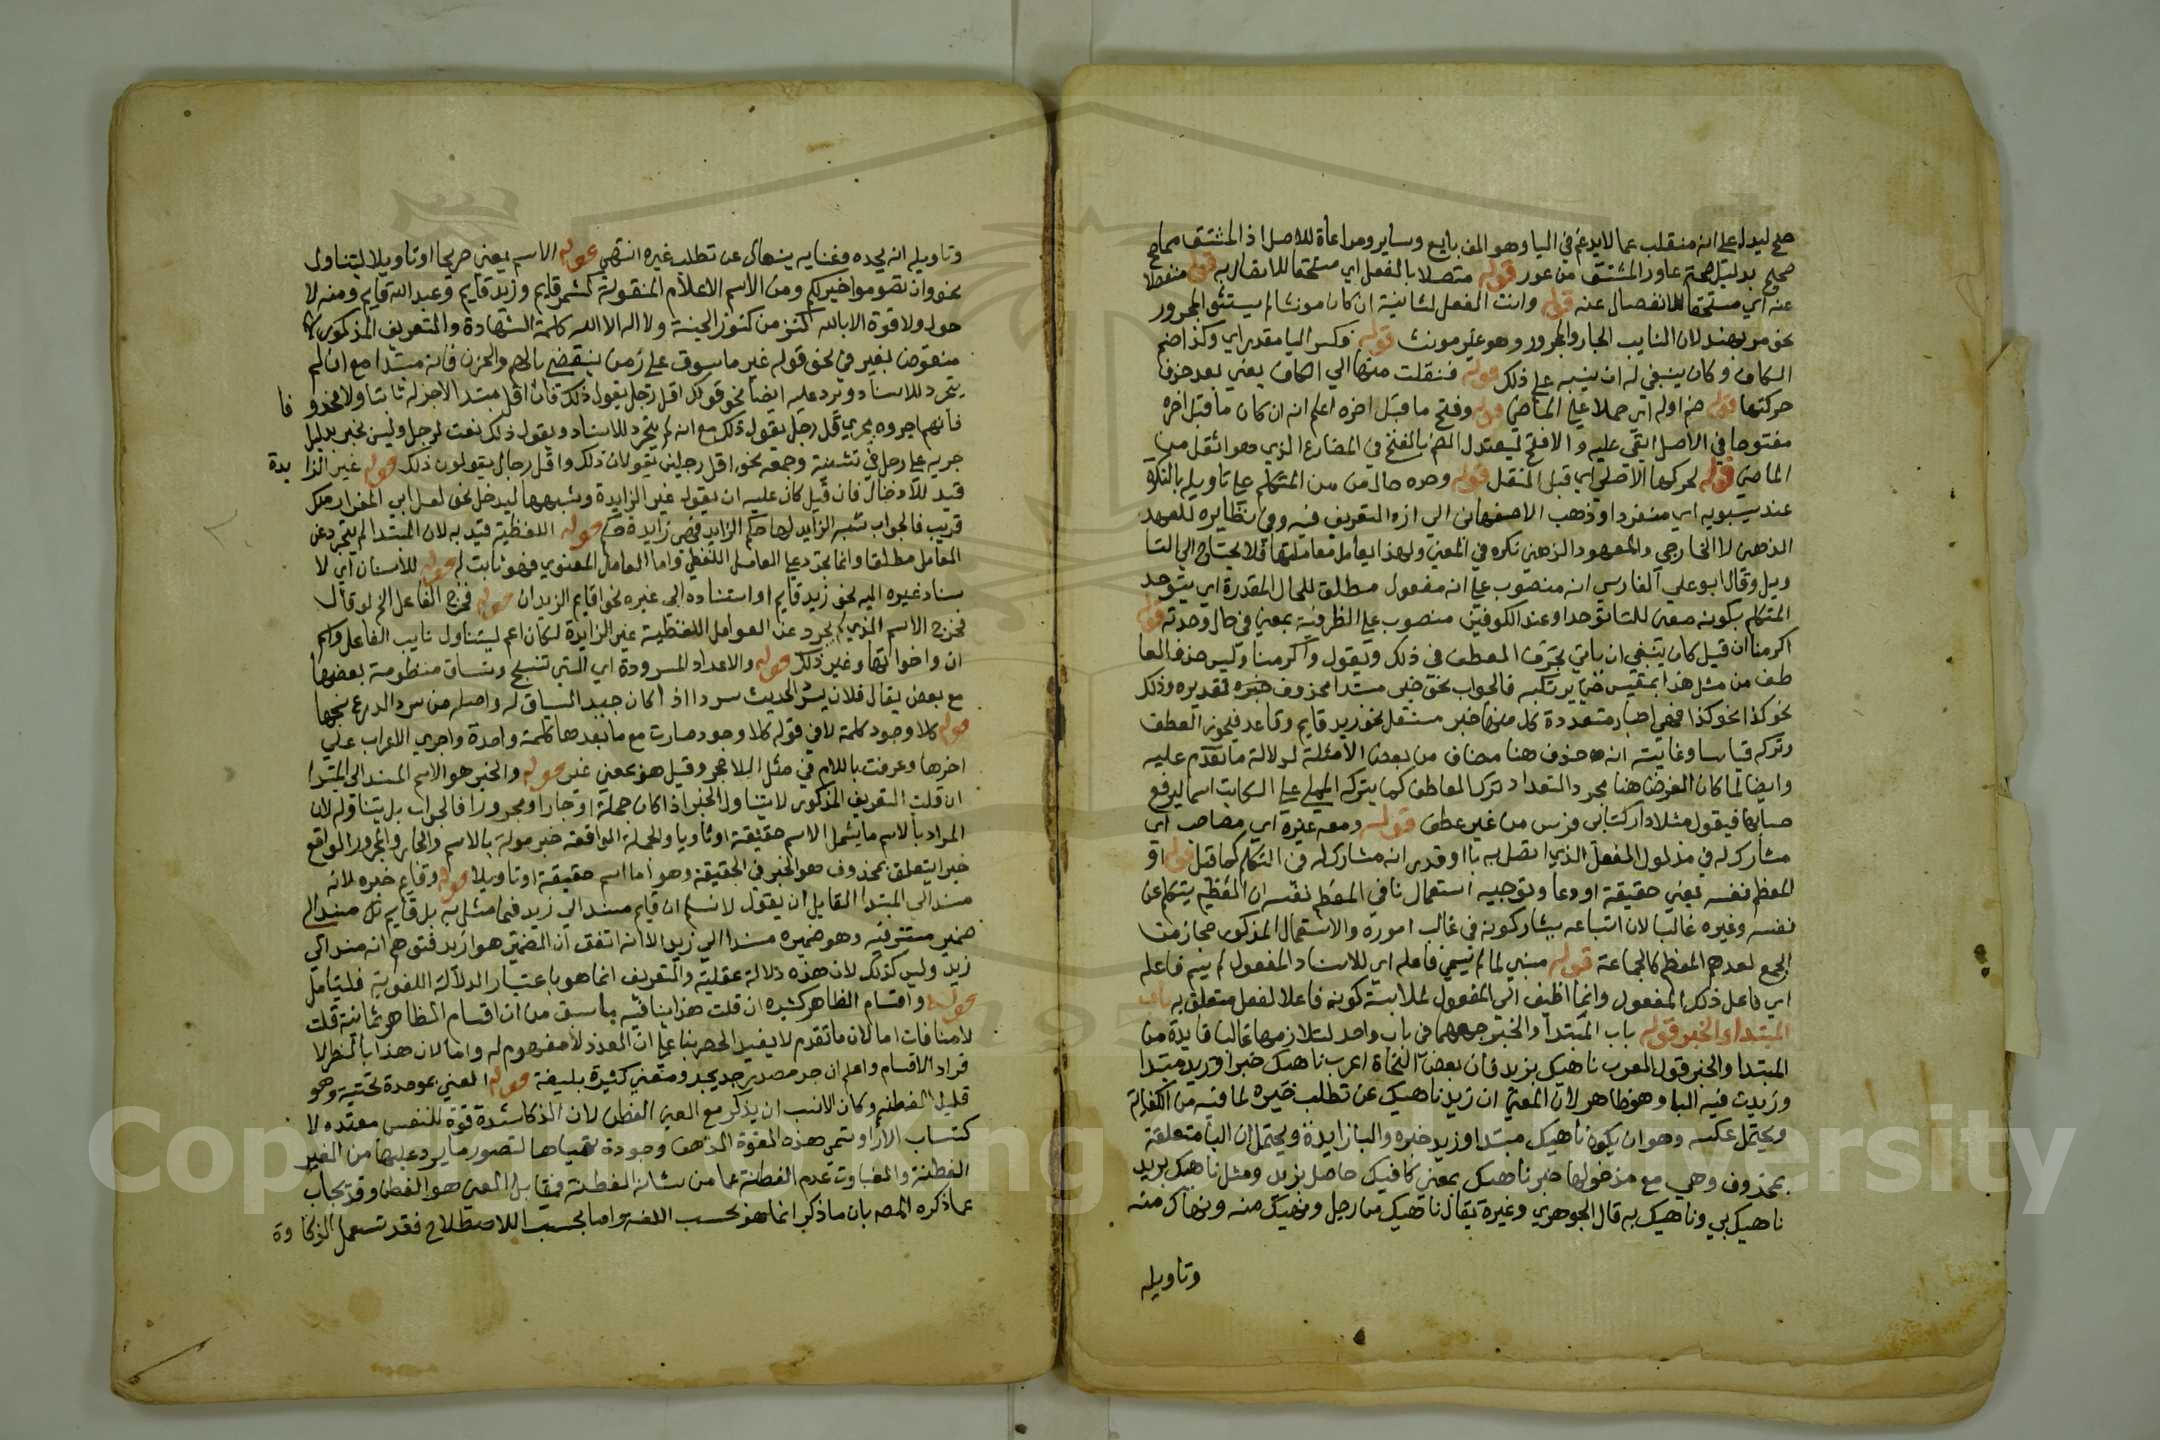 صح ليدل على انه منقلب عما لا يدغم في اليا وهو الف بايع وساير ومراعاة للاصل اذ المشتق مما صح
صحيح بدليل صحة عاور المشتق من عور قوله متصلا بالفعل اي مستحقا للاتصال به قوله منفصلا
عنه اي مستحقا للانفصال عنه قوله وانث الفعل لتانيثه ان كان مونثا لم يستثن المجرور
نحو مر بهند لان النايب الجار والمجرور وهو غير مونث قوله فكسر اليا مقدر اي وكذا ضم
الكاف وكان ينبغي له ان ينبه على ذلك قوله فنقلت منها الى الكاف يعني بعد حذف
حركتها قوله ضم اوله اي حملا على الماضي قوله وفتح ما قبل اخره اعلم انه ان كان ما قبل اخره
مفتوحا في الاصل ابقي عليه والا فتح ليعتدل الضم بالفتح في المضارع الذي هو اثقل من
الماضي قوله لحركها الاصلي اي قبل النقل قوله وحده حال من من المتكلم على تاويله بالنكرة
عند سيبويه اي منفردا وذهب الاصفهاني الى ان التعريف فيه وفي نظايره للعهد
الذهني لا الخارجي والمعهود الذهني نكرة في المعنى ولهذا يعامل معاملتها فلا يحتاج الى التا
ويل وقال ابو علي الفارسي انه منصوب على انه مفعول مطلق للحال المقدرة اي يتوحد
المتكلم بكونه معنى للتا توحدا وعند الكوفيين منصوب على الظرفية بمعنى في حال وحدته قوله
اكرمنا ان قيل كان ينبغي ان ياتي بحرف العطف في ذلك ويقول واكرمنا وليس حذف العا
طف من مثل هذا بمقيس حتى يرتكبه فالجواب نحو خبر مبتدا محذوف خبره تقديره وذلك
نحو كذا نحو كذا فهي اخبار متعددة كل منها خبر مستقل نحو زيد قايم وقاعد فيجوز العطف
وتركه قياسا وغايته انه حذف هنا مضاف من بعض الامثلة لدلالة ما تقدم عليه
وايضا لما كان الغرض هنا مجرد التعداد ترك العاطف كما يتركه المملي على الكاتب اسما ليرفع
حسابها فيقول مثلا دار كتاب فرس من غير عطف قوله ومعه غيره اي مصاحب اي
مشارك له في مدلول الفعل الذي اتصل به نا او قدر انه مشارك له في التكلم كما قيل قوله او
المعظم نفسه يعني حقيقة او دعا وتوجيه استعمال نا في المعظم نفسه ان العظيم يتكلم عن
نفسه وغيره غالبا لان اتباعه يشاركونه في غالب اموره والاستعمال المذكور مجاز من
الجمع لعدهم المعظم كالجماعة قوله مبني لما لم يسمى فاعله اي للاسناد المفعول لم يسم فاعله
اي فاعل ذلك المفعول وانما اضيف الى المفعول لملابسة كونه فاعلا لفعل متعلق به باب
المبتدا والخبر قوله باب المبتدا والخبر جمعهما في باب واحد لتلازمها غالبا فايدة من
المبتدا والخبر قول المعرب ناهيك بزيد فان بعض النحاة اعرب ناهيك خبرا وزيد مبتدا
وزيدت فيه البا وهو ظاهر لان المعنى ان زيد ناهيك عن تطلب غيره لما فيه من الكفاية
ويحتمل عكسه وهو ان يكون ناهيك مبتدا وزيد خبره والبا زايدة ويحتمل ان البا متعلقة
بمحذوف وهي مع مدخولها خبر ناهيك بمعنى كافيك حاصل بزيد ومثل ناهيك بزيد
ناهيك بي وناهيك به قال الجوهري وغيره يقال ناهيك من رجل ونهيك منه ونهاك منه
وتاويله
وتاويله انه يجده وغنايه ينهاك عن تطلب غيره انتهى قوله الاسم يعني صريحا او تاويلا ليتناول
نحو وان تصوموا خير لكم ومن الاسم الاعلام المنقولة كشمر قايم وزيد قايم وعبد الله قايم ومنه لا
حول ولا قوة الا بالله كنز من كنوز الجنة ولا اله الا الله كلمة الشهادة والتعريف المذكور
منقوض بغير في نحو قوله غير ماسوف على زمن ينقضي بالهم والحزن فانه مبتدا مع ان لم
يتجرد للاسناد ويرد عليه ايضا نحو قولك اقل رجل يقول ذلك فان اقل مبتدا لا خبر له ثابتا ولا محذوفا
فانهم اجروه مجرى قل رجل يقول ذلك مع انه لم يتجرد للاسناد ويقول ذلك نعت لرجل وليس بخبر بدليل
جريه على رجل في تثنية وجمعه نحو اقل رجلين يقولان ذلك واقل رجال يقولون ذلك قوله غير الزايدة
قيد للادخال فان قيل كان عليه ان يقول غير الزايدة وشبهها ليدخل نحو لعل ابي المغوار منك
قريب فالجواب شبه الزايد لها حكم الزايد فهي زايدة حكم قوله اللفظية قيد به لان المبتدا لم يتجرد عن
العامل مطلقا وانما تجرد على العامل اللفظي واما العامل المعنوي فهو ثابت له قوله للاسنان اي لا
سناد غيره اليه نحو زيد قايم او اسناده الى غيره نحو اقايم الزيدان قوله فخرج الفاعل الخ لو قال
فخرج الاسم الذي لم يجرد عن العوامل اللفظية غير الزايدة لكان اعم ليتناول نايب الفاعل واسم
ان واخواتها وغير ذلك قوله والاعداد المسرودة اي التي تنسج وتساق منظومة بعضها
مع بعض يقال فلان يسرد الحديث سردا اذا كان جيد السياق له واصله من سرد الدرع نسجها
قوله كلا وجود كلمة لا في قوله كلا وجود صارت مع ما بعدها كلمة واحدة واجري الاعراب على
اخرها وعرفت باللام في مثل البلا هجر وقيل هو بمعنى غير قوله والخبر هو الاسم المسند الى المبتدا
ان قلت التعريف المذكور لا يتناول الخبر اذا كان جملة او جارا ومجرورا فالجواب بل يتناوله لان
المراد بالاسم ما يشمل الاسم حقيقة او تاويلا والجملة الواقعة خبر مولة بالاسم والجار والمجرور الواقع
خبرا يتعلق بمحذوف هو الخبر في الحقيقة وهو اما اسم حقيقة او تاويلا قوله وقايم خبره لانه
مسند الى المبتدا القايل ان يقول لا نسلم ان قايم مسند الى زيد فيما مثل به بل قايم مسند الى
ضمير مستتر فيه وهو ضميره مسندا الى زيد الا انه اتفق ان الضمير هو لزيد فتوهم انه مسند الى
زيد وليس كذلك لان هذه دلالة عقلية والتعريف انما هو باعتبار الدلالة اللغوية فليتامل
قوله واقسام الظاهر كثيرة ان قلت هذا ينافيه ما سبق من ان اقسام الظاهر ثمانية قلت
لا منافات اما لان ما تقدم لا يفيد الحصر بنا على ان العدد لا مفهوم له واما لان هذا بالنظر لا
فراد الاقسام واعلم ان جد مصدر جد يجد ومعنى كثيرة بليغة قوله الغبي بموحدة تحتية وهو
قليل الفطنة وكان الانسب ان يذكر مع الغبي الفطن لان الذكا شدة قوة للنفس معتده لا
كتساب الارا وتسمى هذه القوة الذهن وجودة تهياها لتصور ما يرد عليها من الغير
الفطنة والغباوت عدم الفطنة عما من شانه الفطنة فمقابل الغبي هو الفطن وقد يجاب
عما ذكره المص بان ما ذكر انما هو بحسب اللغة واما بحسب اللاصطلاح فقد تستعمل الذكاوة